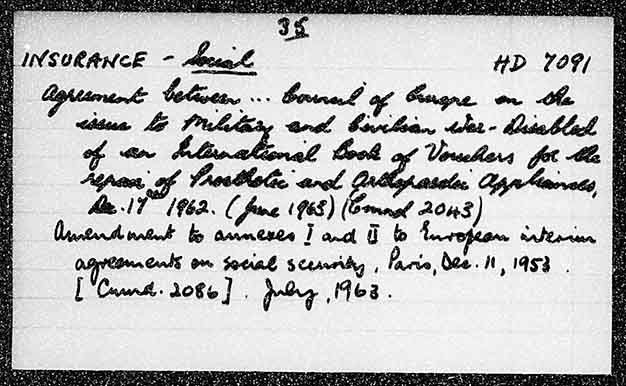 35
INSURANCE - Social HD 7091
Agreement between ... Council of Europe on the
issue to Military and Civilian War-Disabled
of an International Book of Vouchers for the
repair of Prosthetic and Orthopaedic Appliances,
Dec. 17 1962. (June 1963) (Cmnd 2043)
Amendment to annexes I and II to European interim
agreements on social security, Paris, Dec. 11, 1953.
[Cmnd. 2086]. July, 1963.